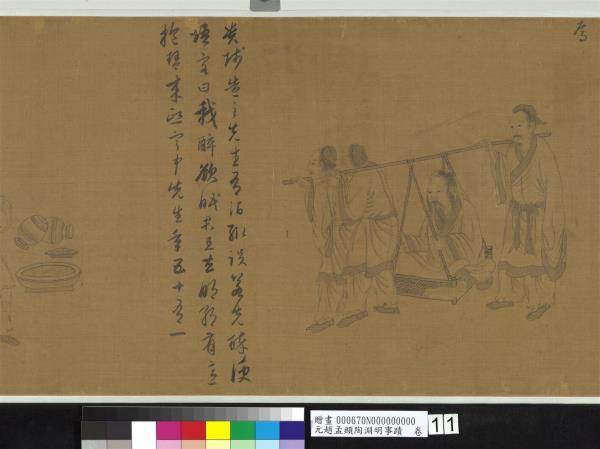 焉
貴賤造之先生有酒輒設若先醉便
語客曰我醉欲眠卿且去明朝有意
抱琴來中先生年五十有一
贈畫 000670N000000000
元趙孟頫陶淵明事蹟 卷
11